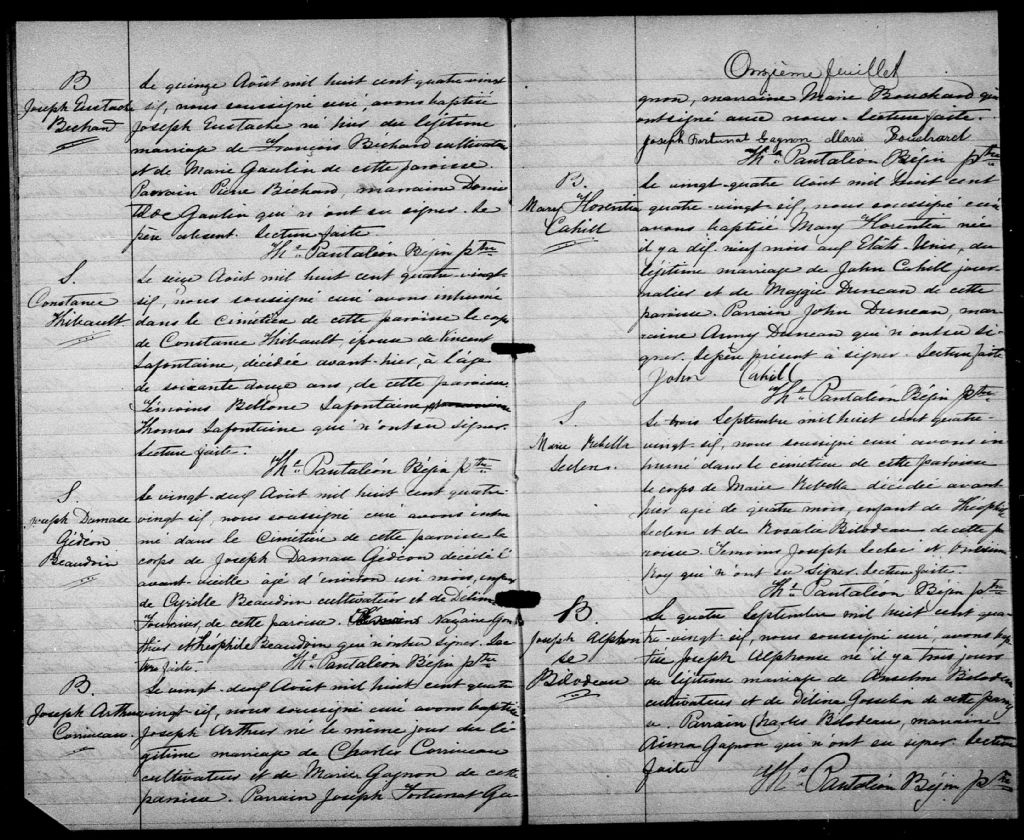 B
Joseph Eustache
Bechard
Le quinze Août mil huit cent quatre vingt
six, nous soussigné curé, avons baptisé
Joseph Eustache né hier du légitime
mariage de François Béchard cultivateur
et de Marie Gaulin de cette paroisse.
Parrain Pierre Bechard, marraine Domi
Gaulin qui n'ont su signer. Le
père absent. Lecture faite
Ths. Pantaléon Bégin ptre
S.
Constance
Thibault
Le seize Août mil huit cent quatre-vingt-
six, nous soussigné curé avons inhumé
dans le cimetière de cette paroisse le corps
de Constance Thibault, épouse de Vincent
Lafontaine, décédée avant-hier, à l'âge
de soixante douze ans, de cette paroisse.
Témoins Bellone Lafontaine,
Thomas Lafontaine qui n'ont su signer.
Lecture faite.
Ths. Pantaléon Bégin ptre
S.
Joseph Damase
Gédéon
Beaudoin
Le vingt-deux Août mil huit cent quatre-
vingt six, nous soussigné curé avons inhu
mé dans le Cimetière de cette paroisse le
corps de Joseph Damase Gédéon décédé l'
avant-veille âgé d'environ un mois, enfant
de Cyrille Beaudoin cultivateur et de Délima
Fournier, de cette paroisse. Nazaire Gon
thier et Théophile Beaudoin qui n'ont su signer. Lec
ture faite.
Ths. Pantaléon Bégin ptre
B.
Joseph Arthur
Corriveau.
Le vingt-deux Août mil huit cent quatre
vingt six, nous soussigné curé avons baptisé
Joseph Arthur né le même jour du lé
gitime mariage de Charles Corriveau
cultivateur et de Marie Gagnon de cette
paroisse. Parrain Joseph Fortunat Ga
Onzième feuillet
gnon, marraine Marie Bouchard qui
ont signé avec nous. Lecture faite.
Joseph Fortunat Gagnon Maria Bouchard
Ths. Pantaléon Bégin ptre
B.
Mary Florentia
Cahill
Le vingt-quatre Août mil huit cent
quatre-vingt-six, nous soussigné curé
avons baptisé Mary Florentia née
il y a dix-neuf mois aux Etats-Unis, du
légitime mariage de John Cahill jour
nalier et de Maggie Duncan de cette
paroisse. Parrain John Duncan, mar
raine Anny Duncan qui n'ont su si
gner. Le père présent a signer. Lecture faite
John Cahill
Ths. Pantaléon Bégin ptre
S
Marie Rebella
Leclerc.
Le trois Septembre mil huit cent quatre-
vingt-six, nous soussigné curé avons in
humé dans le cimetière de cette paroisse
le corps de Marie Rebella décédée avant
hier agée de quatre mois, enfant de Théophile
Leclerc et de Rosalie Bilodeau de cette pa
roisse. Témoins Joseph Leclerc et
Roy qui n'ont su signer. Lecture faite.
Ths. Pantaléon Bégin ptre
B.
Joseph Alphon
se
Bilodeau
Le quatre Septembre mil huit cent qua
tre-vingt-six, nous soussigné curé, avons bap
tisé Joseph Alphonse né il y a trois jours
du légitime mariage de Anselme Bilodeau
cultivateur et de Délina Gosselin de cette parois
se. Parrain Charles Bilodeau, marraine
Anna Gagnon qui n'ont su signer. Lecture
faite
Ths. Pantaléon Bégin ptre